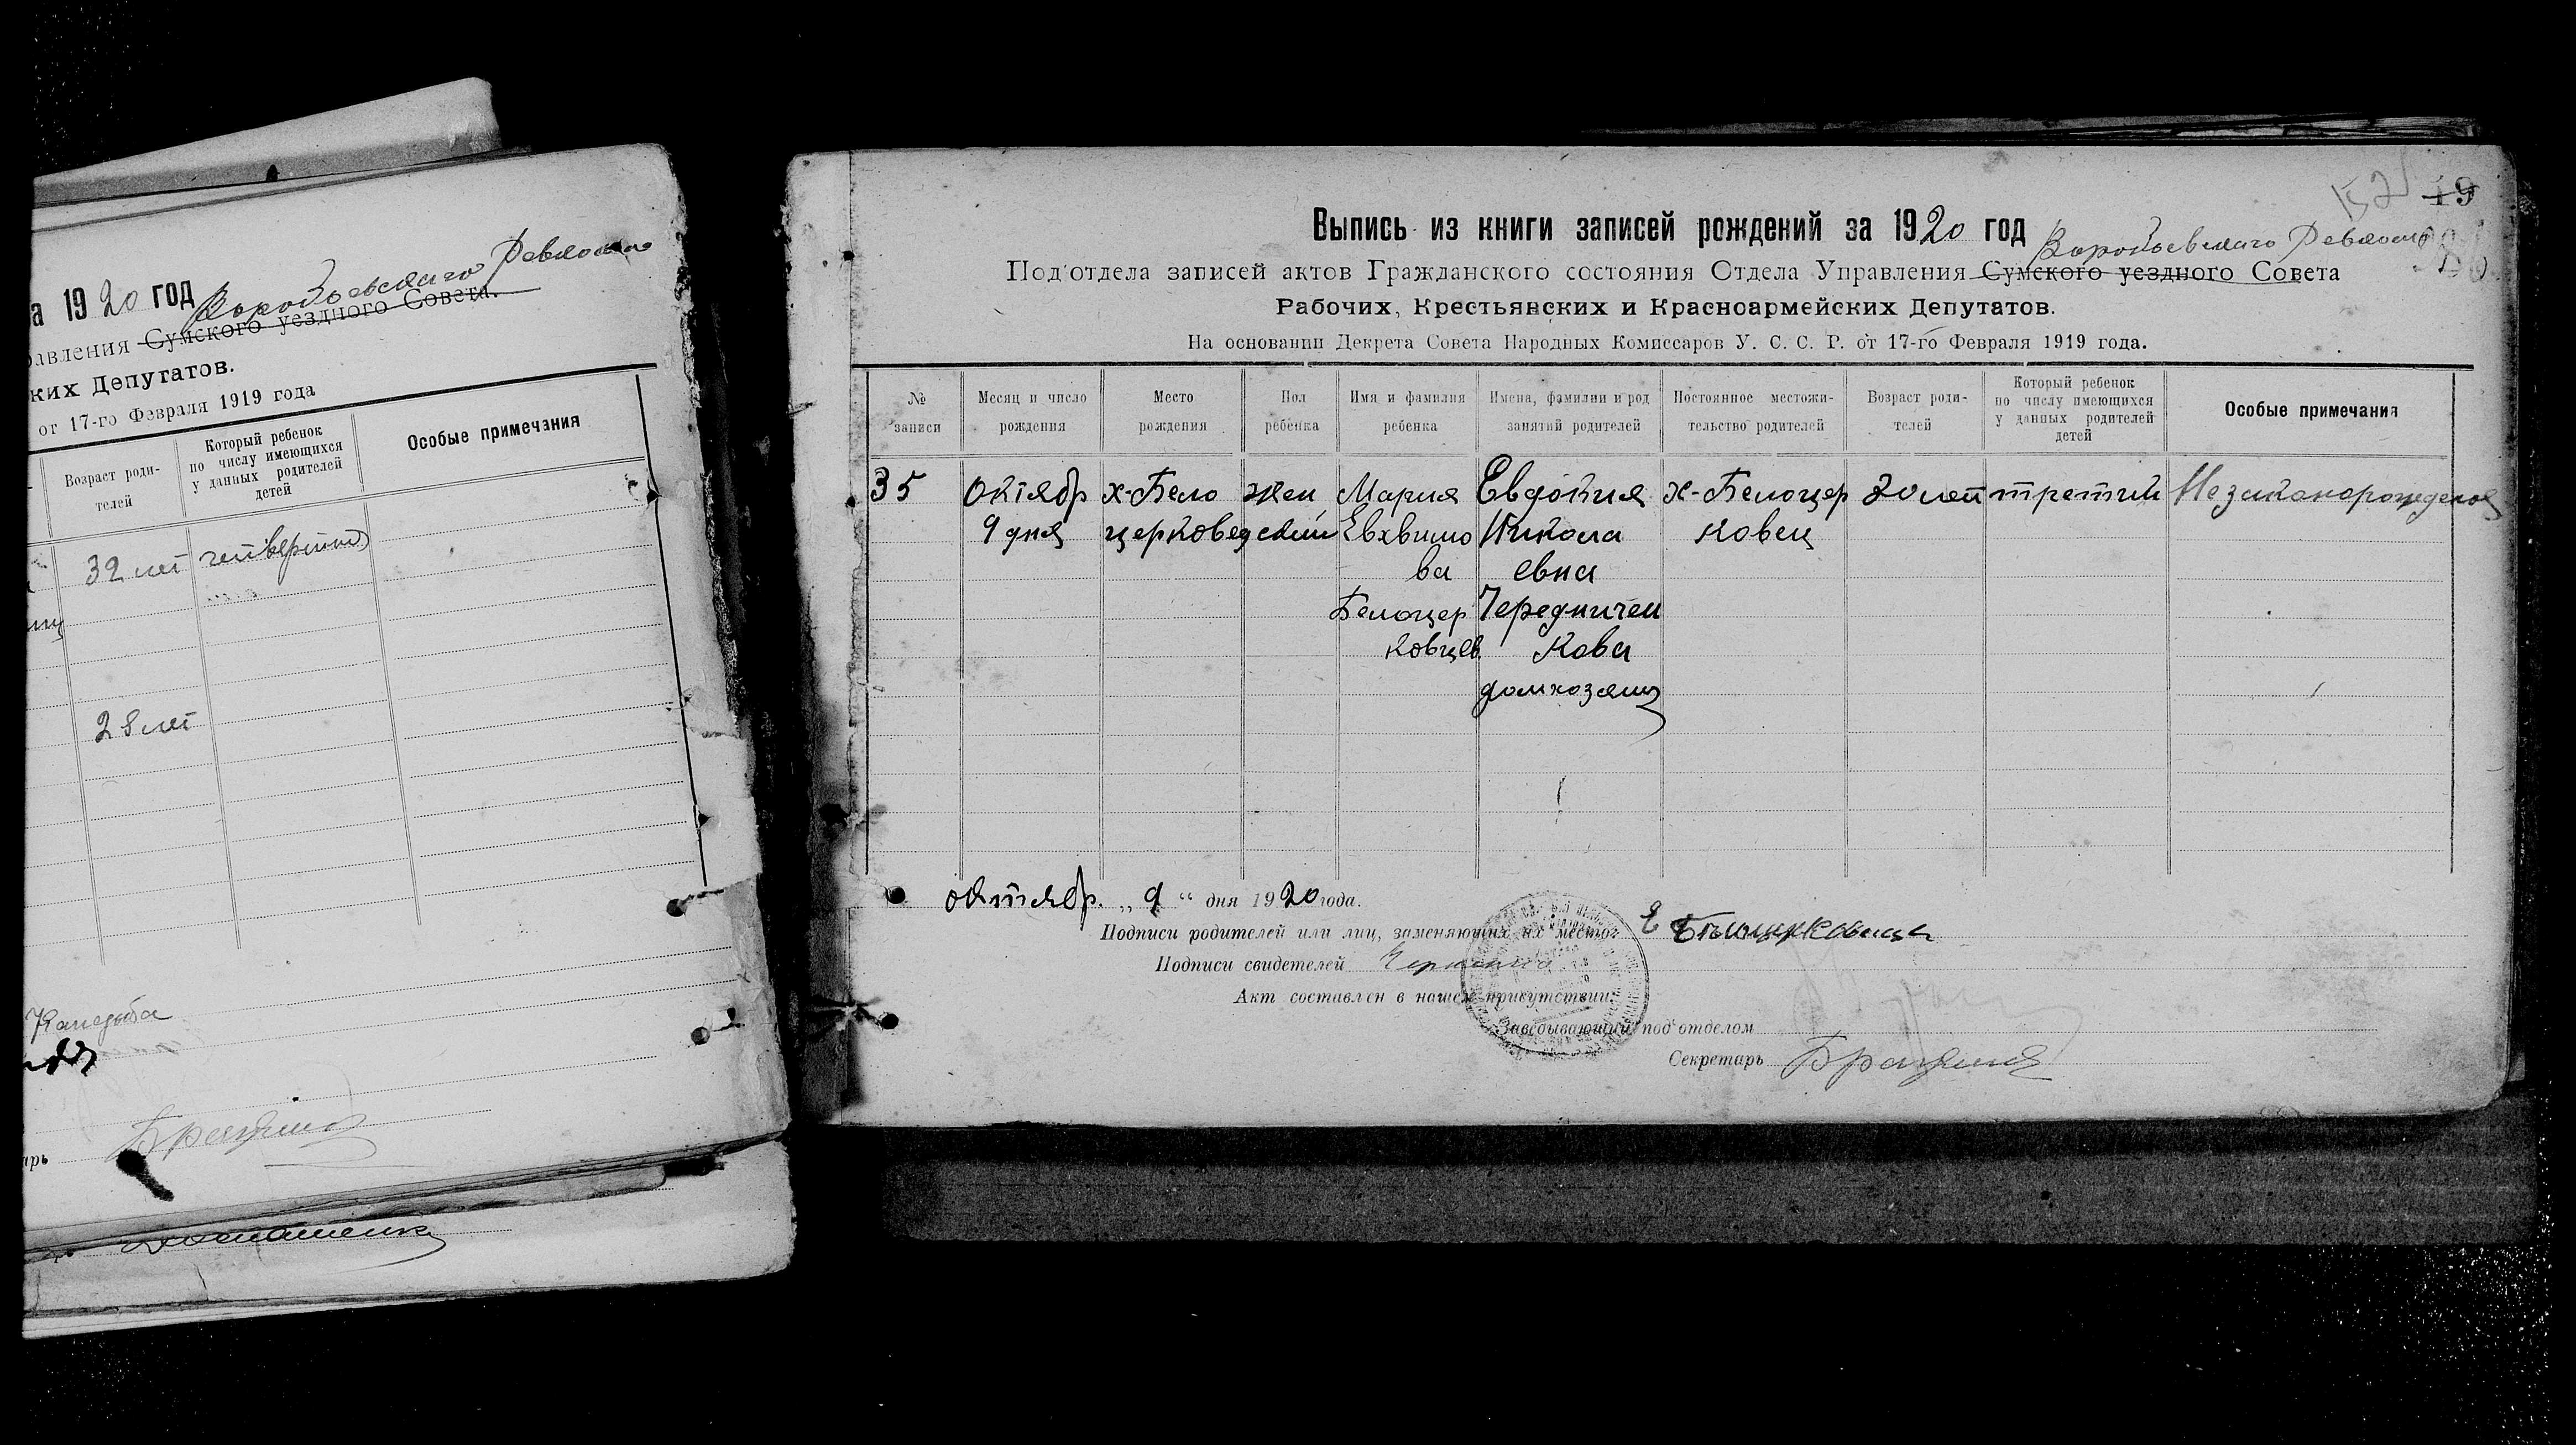 а 1920 год Воробьевскаго Ревкома
равления Сумского уездного Совета.
ких Депутатов.
от 17-го Февраля 1919 года
Возраст роди-
телей
Который ребенок
по числу имеющихся
у данных родителей
детей
Особые примечания
32 лет
28 лет
арь
19
Выпись из книги записей рождений за 1920 год Воробьевскаго Ревкома
Под'отдела записей актов Гражданского состояния Отдела Управления Сумского уездного Совета
Рабочих, Крестьянских и Красноармейских Депутатов.
На основании Декрета Совета Народных Комиссаров У. С. С. Р. от 17-го Февраля 1919 года.
№
записи
Месяц и число
рождения
Место
рождения
Пол
ребенка
Имя и фамилия
ребенка
Имена, фамилии и род
занятий родителей
Постоянное местожи-
тельство родителей
Возраст роди-
телей
Который ребенок
по числу имеющихся
у данных родителей
детей
Особые примечания
35
октябр
9 дня
х-Бело
церковедский
жен
Мария
Евхвимо
ва
Белоцер
ковцев.
Евдокия
Никола
евна
Чередничен
кова
домхозяин
х-Белоцер
ковец
20 лет
третий
Незаконорожденая
октябр. „ 9 “ дня 1920 года.
Подписи родителей или лиц, заменяющих их место: Е
Подписи свидетелей
Акт составлен в нашем присутствии:
Заведывающий под'отделом
Секретарь